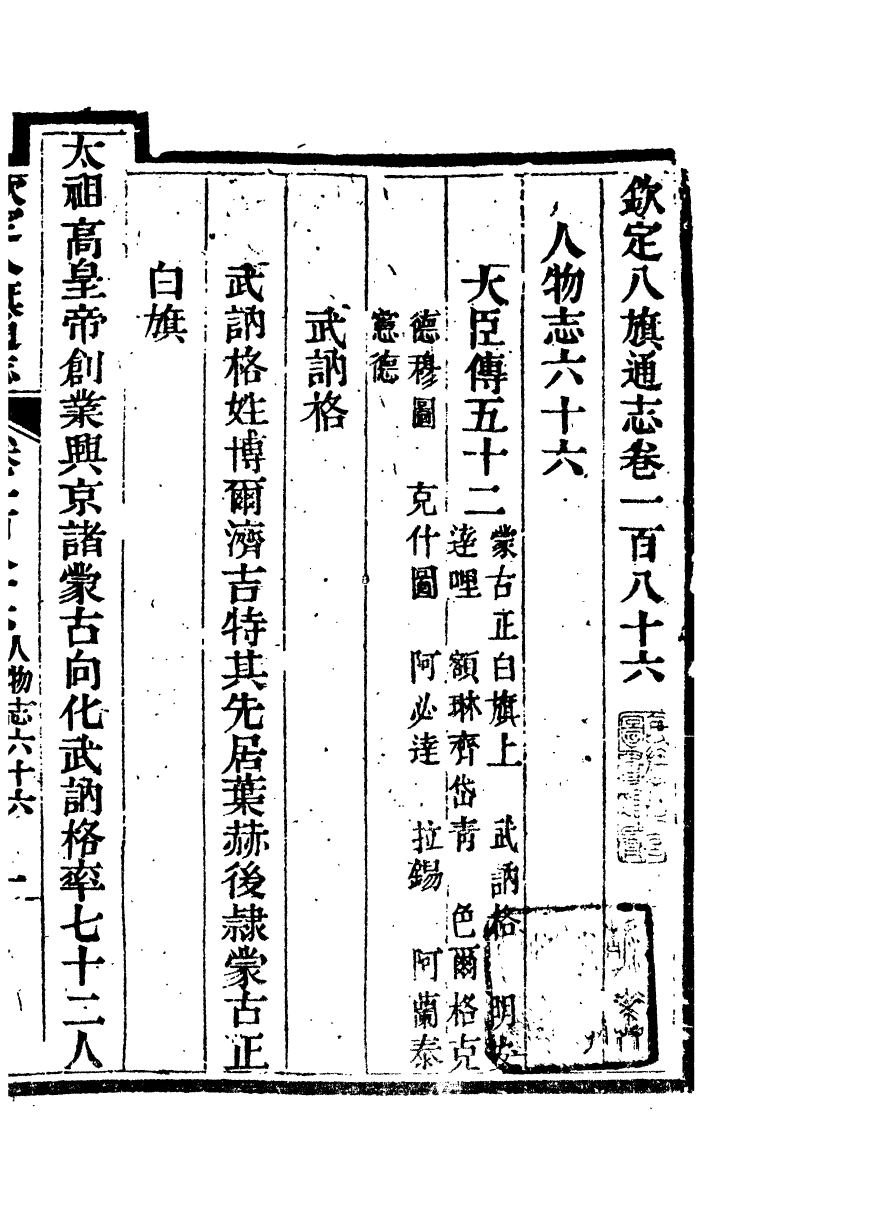 欽定八旗通志卷一百八十六
人物志六十六
大臣傳五十二
蒙古正白旗上　武訥格　明安
達哩　額琳齊岱青　色爾格克
德穆圖　克什圖　阿必達　拉錫　阿蘭泰
憲德
武訥格
武訥格姓博爾濟吉特其先居葉赫後隷蒙古正
白旗
太祖高皇帝創業興京諸蒙古向化武訥格率七十二人
人物志六十六　一